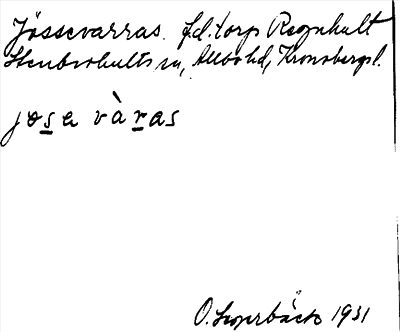 Jössevarras. f.d. torp Regnhult
Stenbrohults sn, Allbo hd, Kronobergs l.
jɵsa vàras
1931